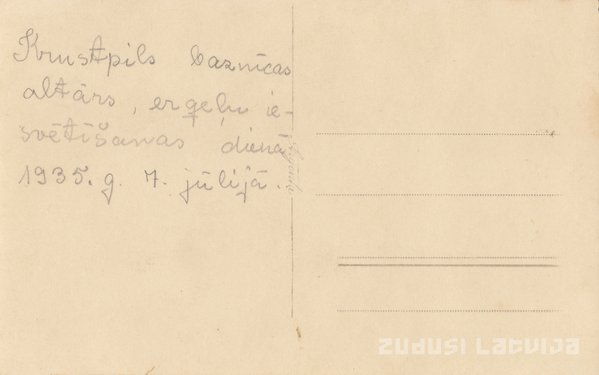 Krustpils baznīcas
altārs, ērģeļu ie-
svētīšanas dienā
1935. g. 7. jūlijā.
ZUDUSI LATVIJA